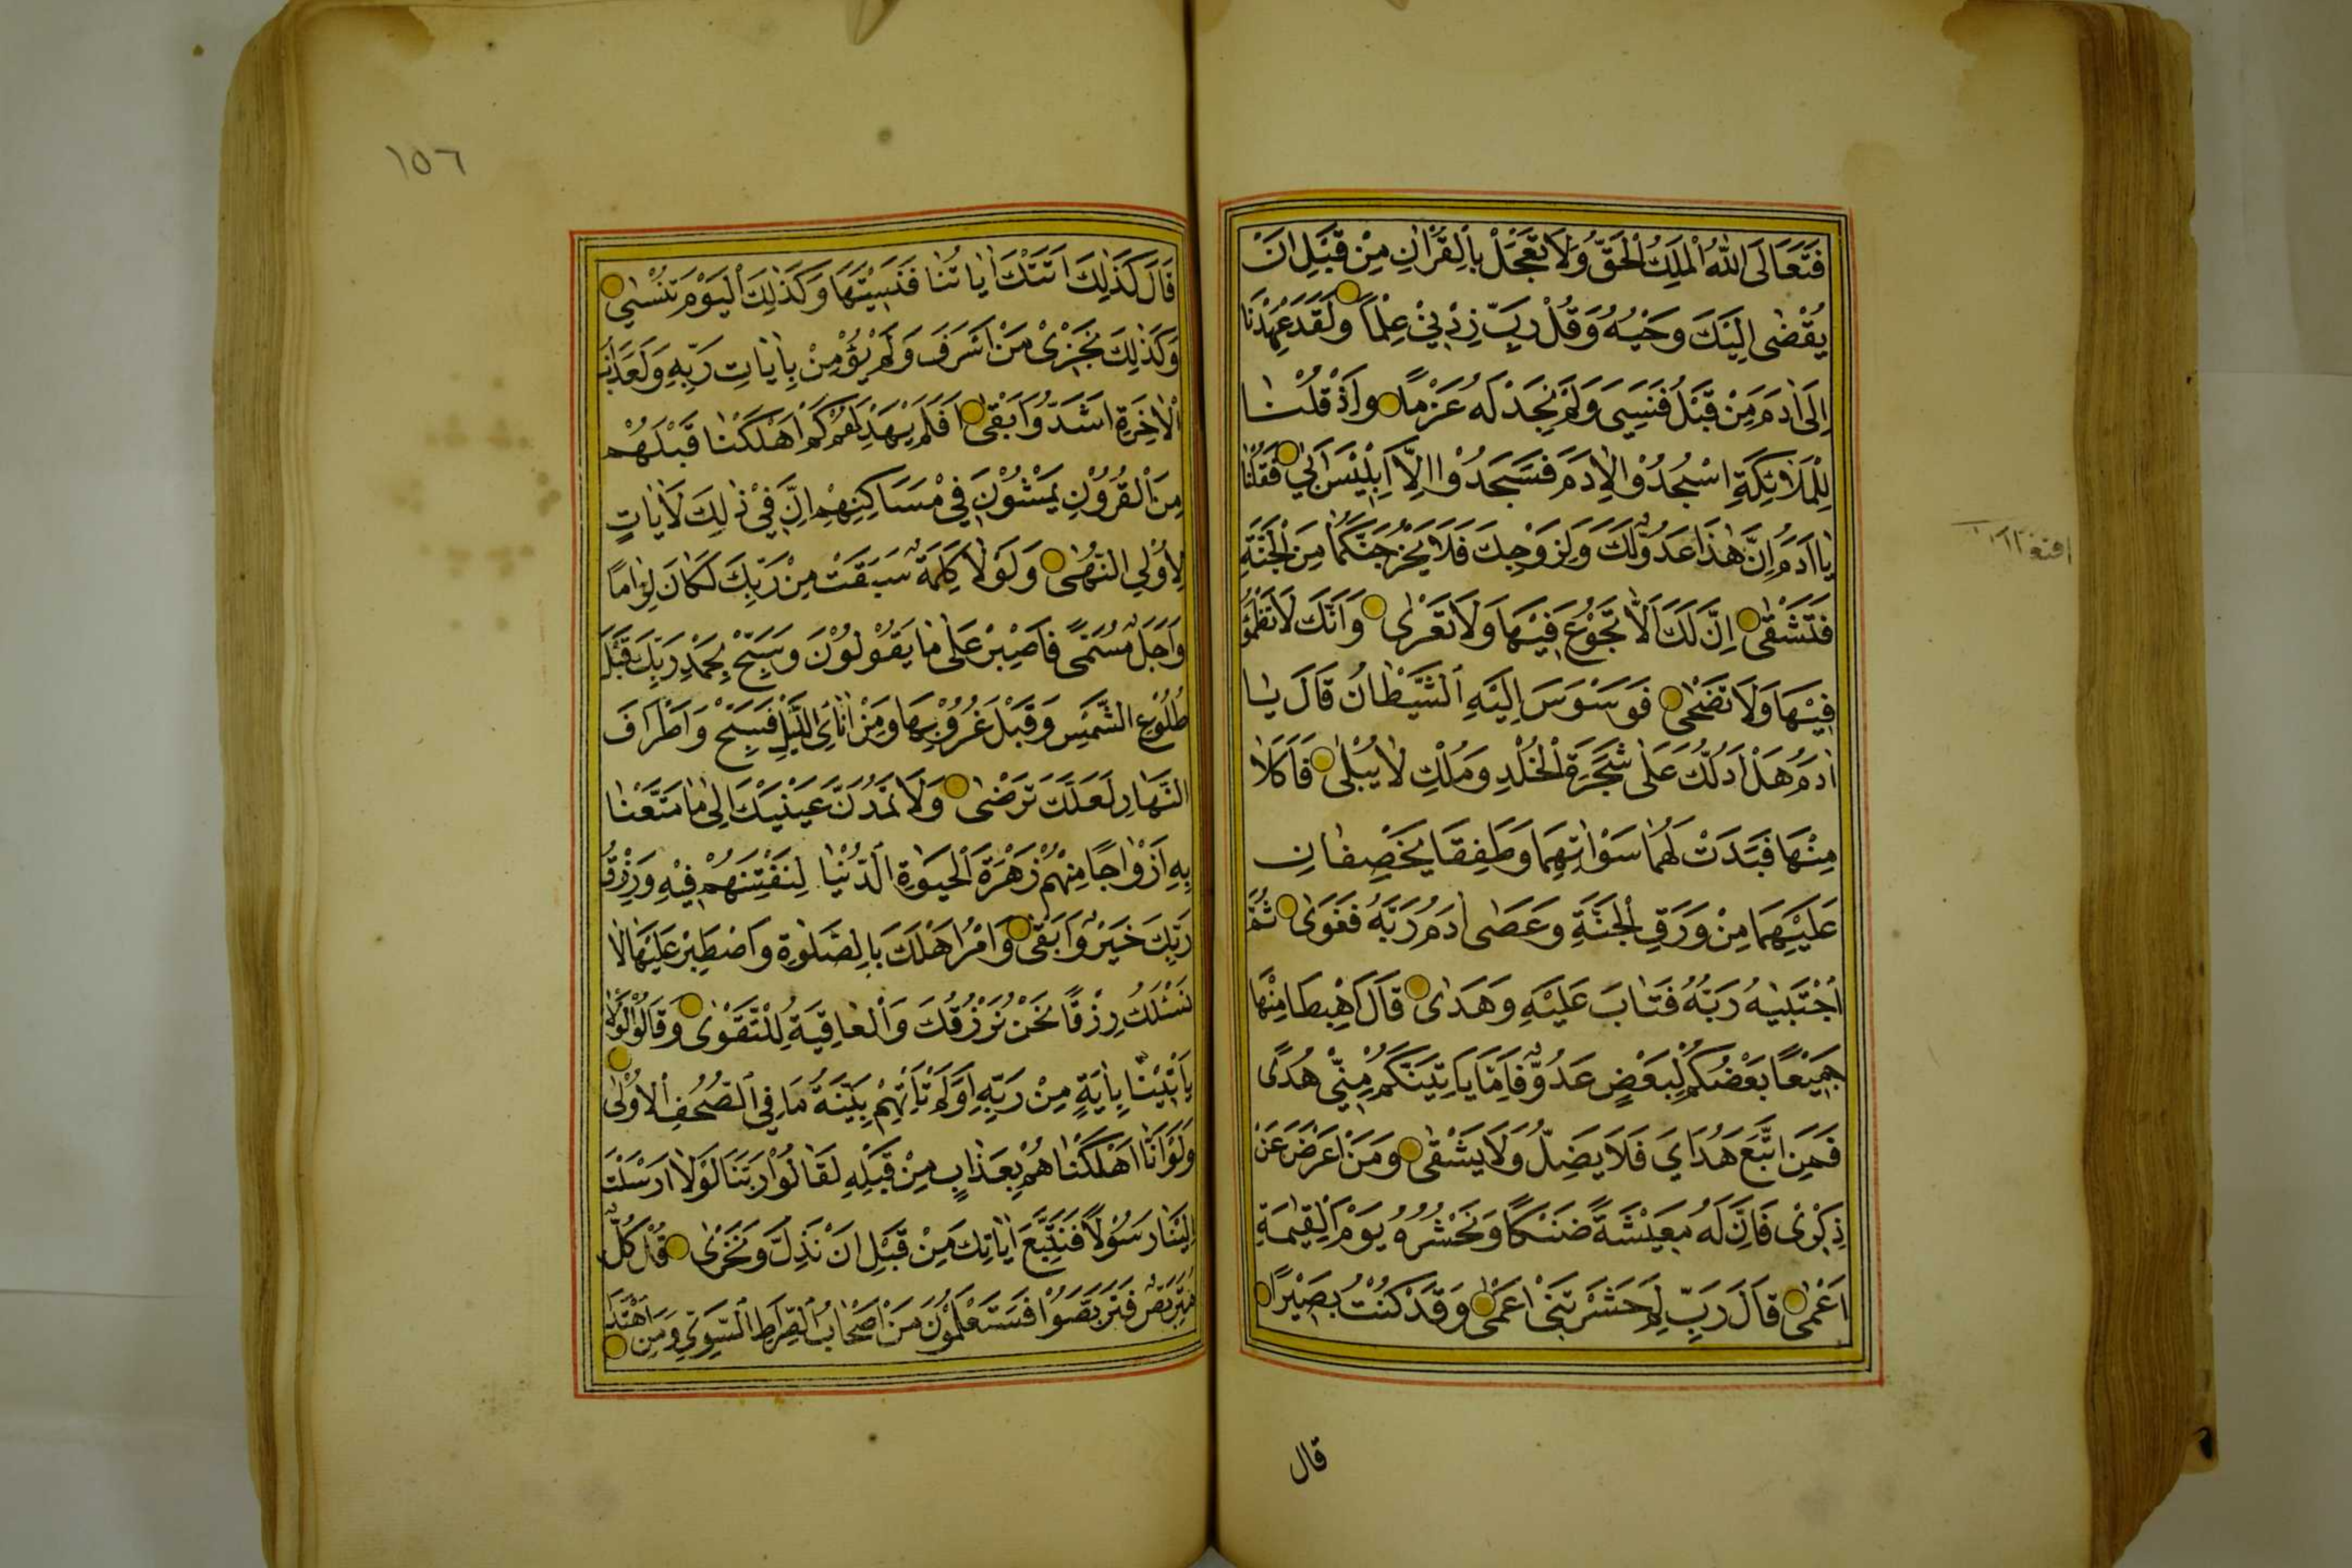 فَتَعَالَى اللّٰهُ الْمَلِكُ الْحَقُّ وَلَا تَعْجَلْ بِالْقُرْاٰنِ مِنْ قَبْلِ اَنْ
يُقْضٰى اِلَيْكَ وَحْيُهُ وَقُلْ رَبِّ زِدْنِيْ عِلْمًا وَلَقَدْ عَهِدْنَا
اِلٰى اٰدَمَ مِنْ قَبْلُ فَنَسِيَ وَلَمْ نَجِدْ لَهُ عَزْمًا وَاِذْ قُلْنَا
لِلْمَلَائِكَةِ اسْجُدُوْا لِاٰدَمَ فَسَجَدُوْا اِلَّا اِبْلِيْسَ اَبٰي فَقُلْنَا
يَا اٰدَمُ اِنَّ هٰذَا عَدُوٌّ لَكَ وَلِزَوْجِكَ فَلَا يُخْرِجَنَّكُمَا مِنَ الْجَنَّةِ
فَتَشْقٰى اِنَّ لَكَ اَلَّا تَجُوْعَ فِيْهَا وَلَا تَعْرٰى وَاَنَّكَ لَا تَظْمَؤُ
فِيْهَا وَلَا تَضْحٰى فَوَسْوَسَ اِلَيْهِ الشَّيْطَانُ قَالَ يَا
اٰدَمُ هَلْ اَدُلُّكَ عَلٰى شَجَرَةِ الْخُلْدِ وَمُلْكٍ لَا يَبْلٰى فَاَكَلَا
مِنْهَا فَبَدَتْ لَهُمَا سَوْاٰتُهُمَا وَطَفِقَا يَخْصِفَانِ
عَلَيْهِمَا مِنْ وَرَقِ الْجَنَّةِ وَعَصٰى اٰدَمُ رَبَّهُ فَغَوٰى ثُمَّ
اجْتَبٰيهُ رَبُّهُ فَتَابَ عَلَيْهِ وَهَدٰى قَالَ اهْبِطَا مِنْهَا
جَمِيْعًا بَعْضُكُمْ لِبَعْضٍ عَدُوٌّ فَاِمَّا يَاْتِيَنَّكُمْ مِنِّيْ هُدًى
فَمَنِ اتَّبَعَ هُدَايَ فَلَا يَضِلُّ وَلَا يَشْقٰى وَمَنْ اَعْرَضَ عَنْ
ذِكْرِيْ فَاِنَّ لَهُ مَعِيْشَةً ضَنْكًا وَنَحْشُرُهُ يَوْمَ الْقِيٰمَةِ
اَعْمٰى قَالَ رَبِّ لِمَ حَشَرْتَنِيْ اَعْمٰى وَقَدْ كُنْتُ بَصِيْرًا
قال
١٥٦
قَالَ كَذٰلِكَ اَتَتْكَ اٰيَاتُنَا فَنَسِيْتَهَا وَكَذٰلِكَ الْيَوْمَ تُنْسٰى
وَكَذٰلِكَ نَجْزِيْ مَنْ اَسْرَفَ وَلَمْ يُؤْمِنْ بِاٰيَاتِ رَبِّهِ وَلَعَذَابُ
الْاٰخِرَةِ اَشَدُّ وَاَبْقٰى اَفَلَمْ يَهْدِ لَهُمْ كَمْ اَهْلَكْنَا قَبْلَهُمْ
مِنَ الْقُرُوْنِ يَمْشُوْنَ فِيْ مَسَاكِنِهِمْ اِنَّ فِيْ ذٰلِكَ لَاٰيَاتٍ
لِاُولِي النُّهٰى وَلَوْلَا كَلِمَةٌ سَبَقَتْ مِنْ رَبِّكَ لَكَانَ لِزَامًا
وَاَجَلٌ مُسَمًّى فَاصْبِرْ عَلٰى مَا يَقُوْلُوْنَ وَسَبِّحْ بِحَمْدِ رَبِّكَ قَبْلَ
طُلُوْعِ الشَّمْسِ وَقَبْلَ غُرُوْبِهَا وَمِنْ اٰنَائِ الَّيْلِ فَسَبِّحْ وَاَطْرَافَ
النَّهَارِ لَعَلَّكَ تَرْضٰى وَلَا تَمُدَّنَّ عَيْنَيْكَ اِلٰى مَا مَتَّعْنَا
بِهِ اَزْوَاجًا مِنْهُمْ زَهْرَةَ الْحَيٰوةِ الدُّنْيَا لِنَفْتِنَهُمْ فِيْهِ وَرِزْقُ
رَبِّكَ خَيْرٌ وَاَبْقٰى وَاْمُرْ اَهْلَكَ بِالصَّلٰوةِ وَاصْطَبِرْ عَلَيْهَا لَا
نَسْئَلُكَ رِزْقًا نَحْنُ نَرْزُقُكَ وَالْعَاقِبَةُ لِلتَّقْوٰى وَقَالُوْا لَوْلَا
يَاْتِيْنَا بِاٰيَةٍ مِنْ رَبِّهِ اَوَلَمْ تَاْتِهِمْ بَيِّنَةُ مَا فِي الصُّحُفِ الْاُوْلٰى
وَلَوْ اَنَّا اَهْلَكْنَاهُمْ بِعَذَابٍ مِنْ قَبْلِهِ لَقَالُوْا رَبَّنَا لَوْلَا اَرْسَلْتَ
اِلَيْنَا رَسُوْلًا فَنَتَّبِعَ اٰيَاتِكَ مِنْ قَبْلِ اَنْ نَذِلَّ وَنَخْزٰى قُلْ كُلٌّ
مُتَرَبِّصٌ فَتَرَبَّصُوْا فَسَتَعْلَمُوْنَ مَنْ اَصْحَابُ الصِّرَاطِ السَّوِيِّ وَمَنِ اهْتَدٰى